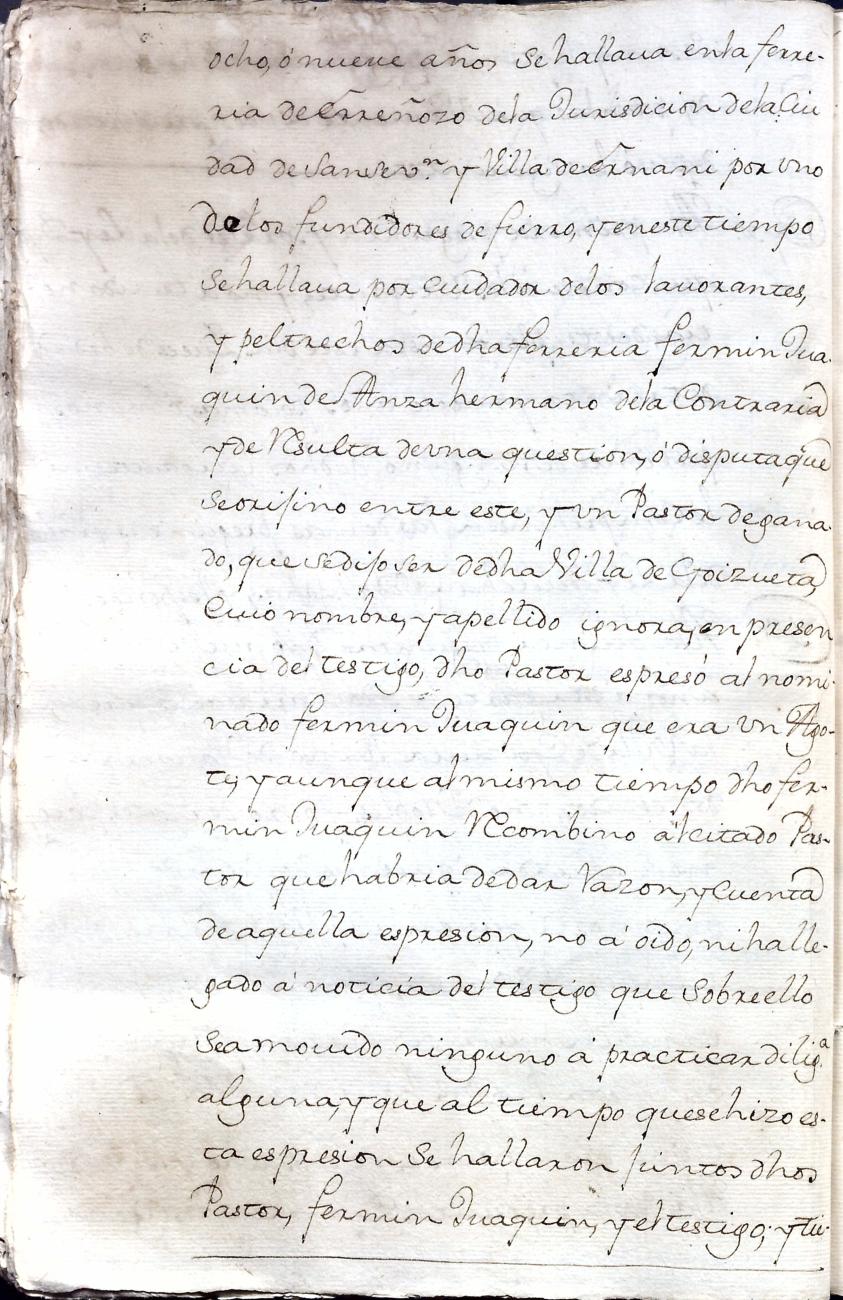 ocho, ó nueve años se hallaua en la ferre-
ria de Erreñozo dela Jurisdicion dela Ciu
dad de Sansevn. y Villa de Ernani por vno
delos fundidores de fierro, y en este tiempo
se hallaua por Cuidador delos lavorantes,
y peltrechos de dha ferreria fermin Jua-
quin de Anza hermano dela Contraria
y de Resulta de vna question, ó disputa que
se orijino entre este, y vn Pastor de gana-
do, que se dijo ser de dha Villa de Goizueta,
Cuio nombre, y apellido ignora, en presen
cia del testigo, dho Pastor espresó al nomi-
nado fermin Juaquin que era vn Ago-
te, y aunque al mismo tiempo dho fer-
min Juaquin Recombino á el citado Pas-
tor que habria de dar Razon, y Cuenta
de aquella espresion, no á oido, ni ha lle-
gado á noticia del testigo que Sobre ello
Sea mouido ninguno á practicar diliga.
alguna, y que al tiempo que se hizo es-
ta espresion Se hallaron juntos dhos
Pastor, fermin Juaquin, y el testigo; y tu-